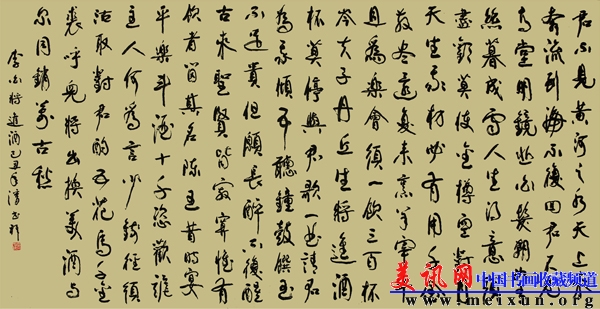 君不見黄河之水天上来
奔流到海不復回君不見
高堂明鏡悲白髮朝如青
絲暮成雪人生得意須
盡歡莫使金樽空對月
天生我材必有用千金
散盡還復来烹羊宰牛
且為樂會須一飲三百杯
岑夫子丹丘生將進酒
杯莫停與君歌一曲請君
為我傾耳聽鐘鼓饌玉
不足貴但願長醉不復醒
古来聖賢皆寂寞惟有
飲者留其名陳王昔時宴
平樂斗酒十千恣歡謔
主人何為言少錢徑須
沽取對君酌五花馬千金
裘呼兒將出換美酒與
尔同銷萬古愁
李白將進酒己丑年
美讯网 中国书画收藏频道
www.imeixun.org